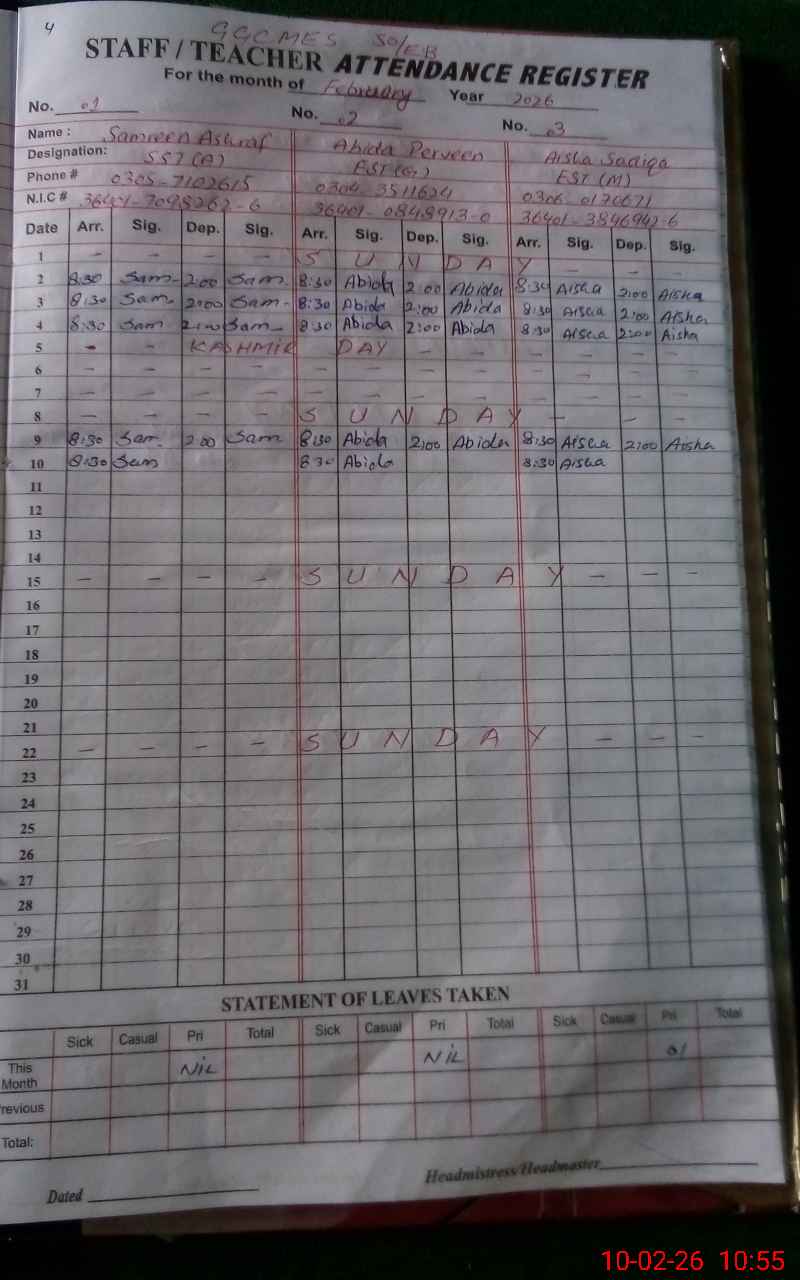 4
GGCMES 50/EB
STAFF / TEACHER ATTENDANCE REGISTER
For the month of February Year 2026
No. 01 No. 02 No. 03
Name : Samreen Ashraf Abida Perveen Aisha Sadiqa
Designation: SST (A) EST (G) EST (M)
Phone # 0305-7102615 0304-3511624 0306-0170671
N.I.C # 36401-7098262-6 36401-0848913-0 36401-3846942-6
Date Arr. Sig. Dep. Sig. Arr. Sig. Dep. Sig. Arr. Sig. Dep. Sig.
1 - - - - S U N D A Y - - -
2 8:30 Sam 2:00 Sam 8:30 Abida 2:00 Abida 8:30 Aisha 2:00 Aisha
3 8:30 Sam 2:00 Sam 8:30 Abida 2:00 Abida 8:30 Aisha 2:00 Aisha
4 8:30 Sam 2:00 Sam 8:30 Abida 2:00 Abida 8:30 Aisha 2:00 Aisha
5 - - KASHMIR DAY - - - - - -
6 - - - - - - - - - - - -
7 - - - - - - - - - - - -
8 - - - - S U N D A Y - - -
9 8:30 Sam 2:00 Sam 8:30 Abida 2:00 Abida 8:30 Aisha 2:00 Aisha
10 8:30 Sam 8:30 Abida 8:30 Aisha
11
12
13
14
15 - - - - S U N D A Y - - -
16
17
18
19
20
21
22 - - - - S U N D A Y - - -
23
24
25
26
27
28
29
30
31
STATEMENT OF LEAVES TAKEN
Sick Casual Pri Total Sick Casual Pri Total Sick Casual Pri Total
This Month NIL NIL 01
revious
Total:
Dated Headmistress/Headmaster
10-02-26 10:55